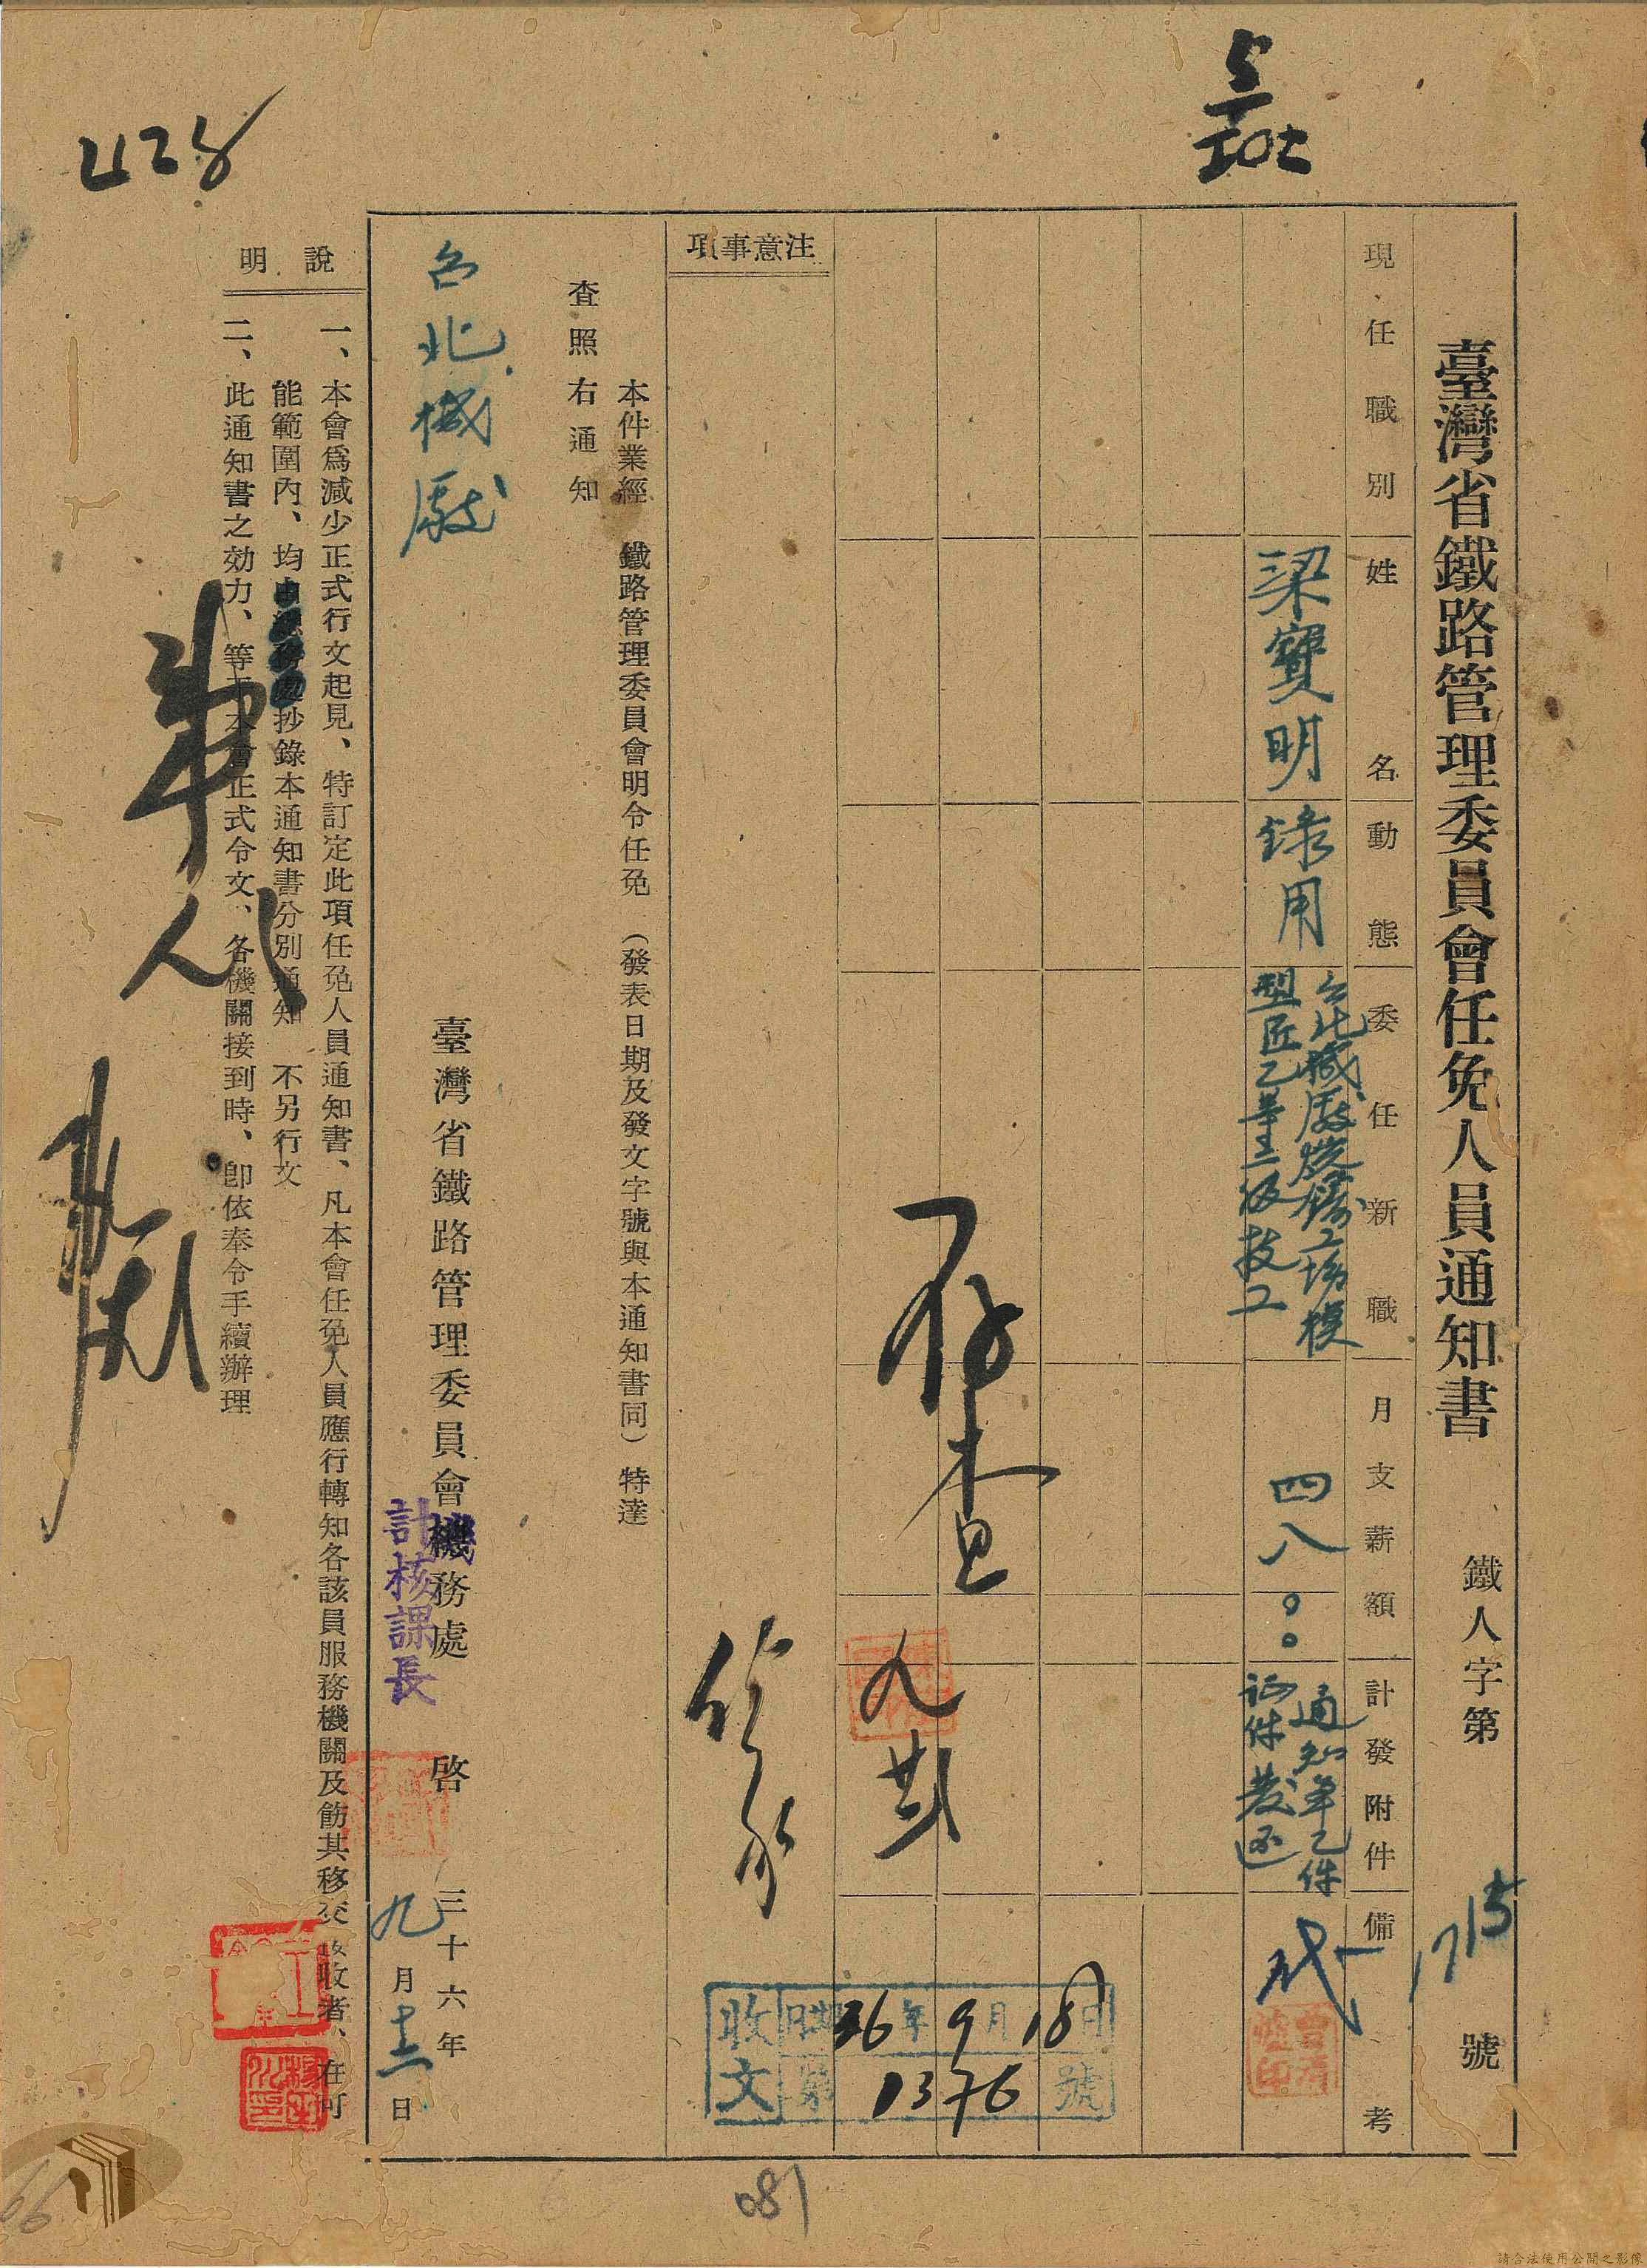 臺灣省鐵路管理委員會任免人員通知書
鐵人字第 1715 號
現任職別
姓名
動態
委任新職
月支薪額
計發附件
備考
梁寶明
錄用
台北機廠修繕工場模
型匠乙等三級技工
四八〇〇
通知單乙件
証件發还
注意事項
存查
九
收文
日期 36年9月18日
第 1376 號
本件業經 鐵路管理委員會明令任免 (發表日期及發文字號與本通知書同) 特達
查照右通知
台北機廠
臺灣省鐵路管理委員會機務處 啓 三十六年
計核課長
九月 日
說明
一、本會爲減少正式行文起見、特訂定此項任免人員通知書、凡本會任免人員應行轉知各該員服務機關及飭其移交 收者、在可
能範圍內、均 抄錄本通知書分別通知 不另行文
二、此通知書之効力、等于本會正式令文、各機關接到時、卽依奉令手續辦理
428
081
66
請合法使用公開之影像